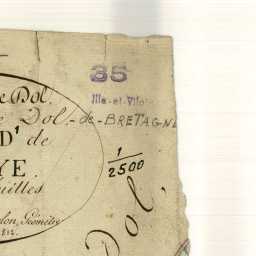 35
Ille-et-Vilaine
e Dol.
Dol-de-BRETAGNE
Dt de
YE.
1/2500
uilles
lon, Géomètre
812.
Dol,